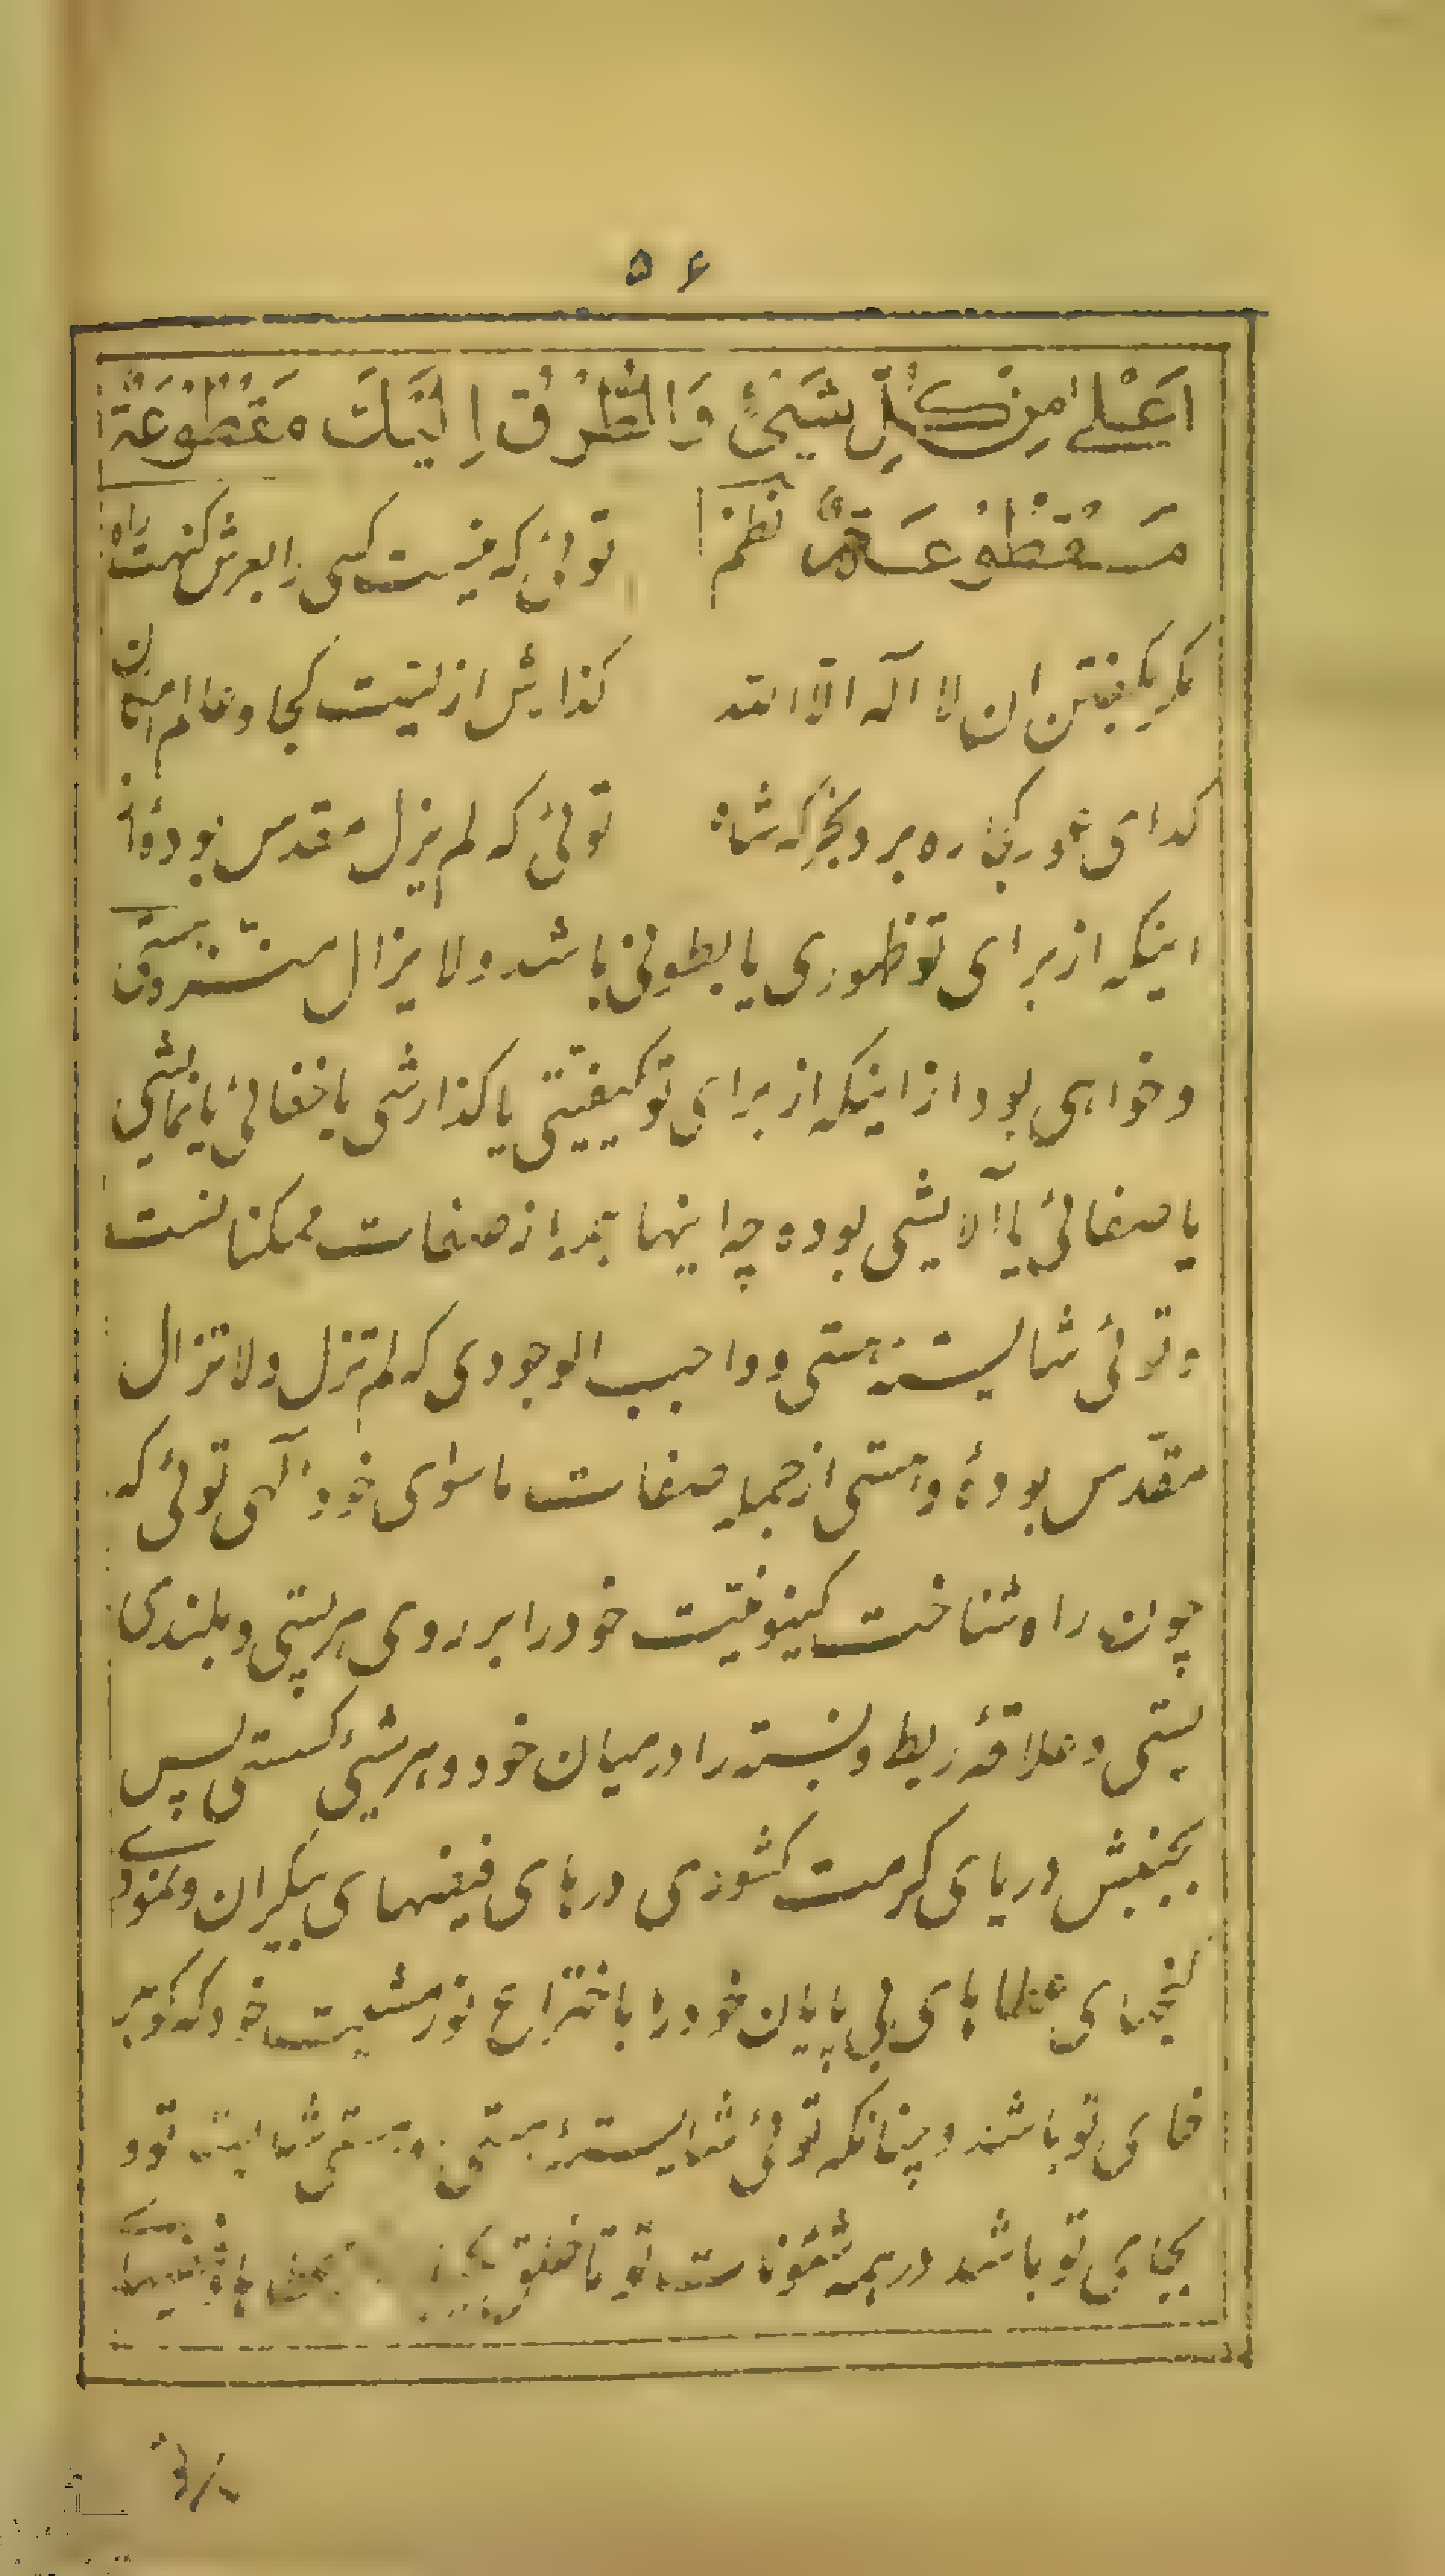 ۵۶
اَعْلےٰ مِنْ کُلِّ شَیْءٍ وَالطُّرُق اِلَیْکَ مَقْطُوْعَةٌ
مَقْطُوْعَةٌ نظم توئی که نیست کسی را بعرش کنهت راه
مکر بکفتن ان لا اله الا الله کذایش از نیست کجا و عالم امکان
کدای ره برد بخرکه شاه توئی که لم یزل مقدس بودهٔ از
اینکه از برای تو ظهوری یا بطونی باشد ولا یزال منزه هستی
و خواهی بود از اینکه از برای تو کیفیتی یا کذارشی یا خفائی یا نمایشی
یا صفائی یا آلایشی بوده چه اینها همه از صفات ممکناتست
و توئی شایسته هستی و واجب الوجودی که لم تزل ولا تزال
مقدّس بودهٔ و هستی از جمله صفات ماسوای خود آلهی توئی که
چون راه شناخت کینونیت خود را بر روی هر پستی و بلندی
بستی و علاقهٔ ربط و نسبت را در میان خود و هر شیئ کسستی پس
بجنبش دریای کرمت کشودی درهای فیضهای بیکران و نمودی
کنجهای عطاهای بی پایان خود را باختراع نور مشیت خود که
تو باشد و چنانکه توئی شایستهٔ هستی و هستی شایسته تو و
بجای تو باشد در همه شئونات تو تا خلق